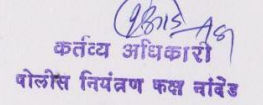 कर्तव्य अधिकारी
पोलीस नियंत्रण कक्ष नांदेड